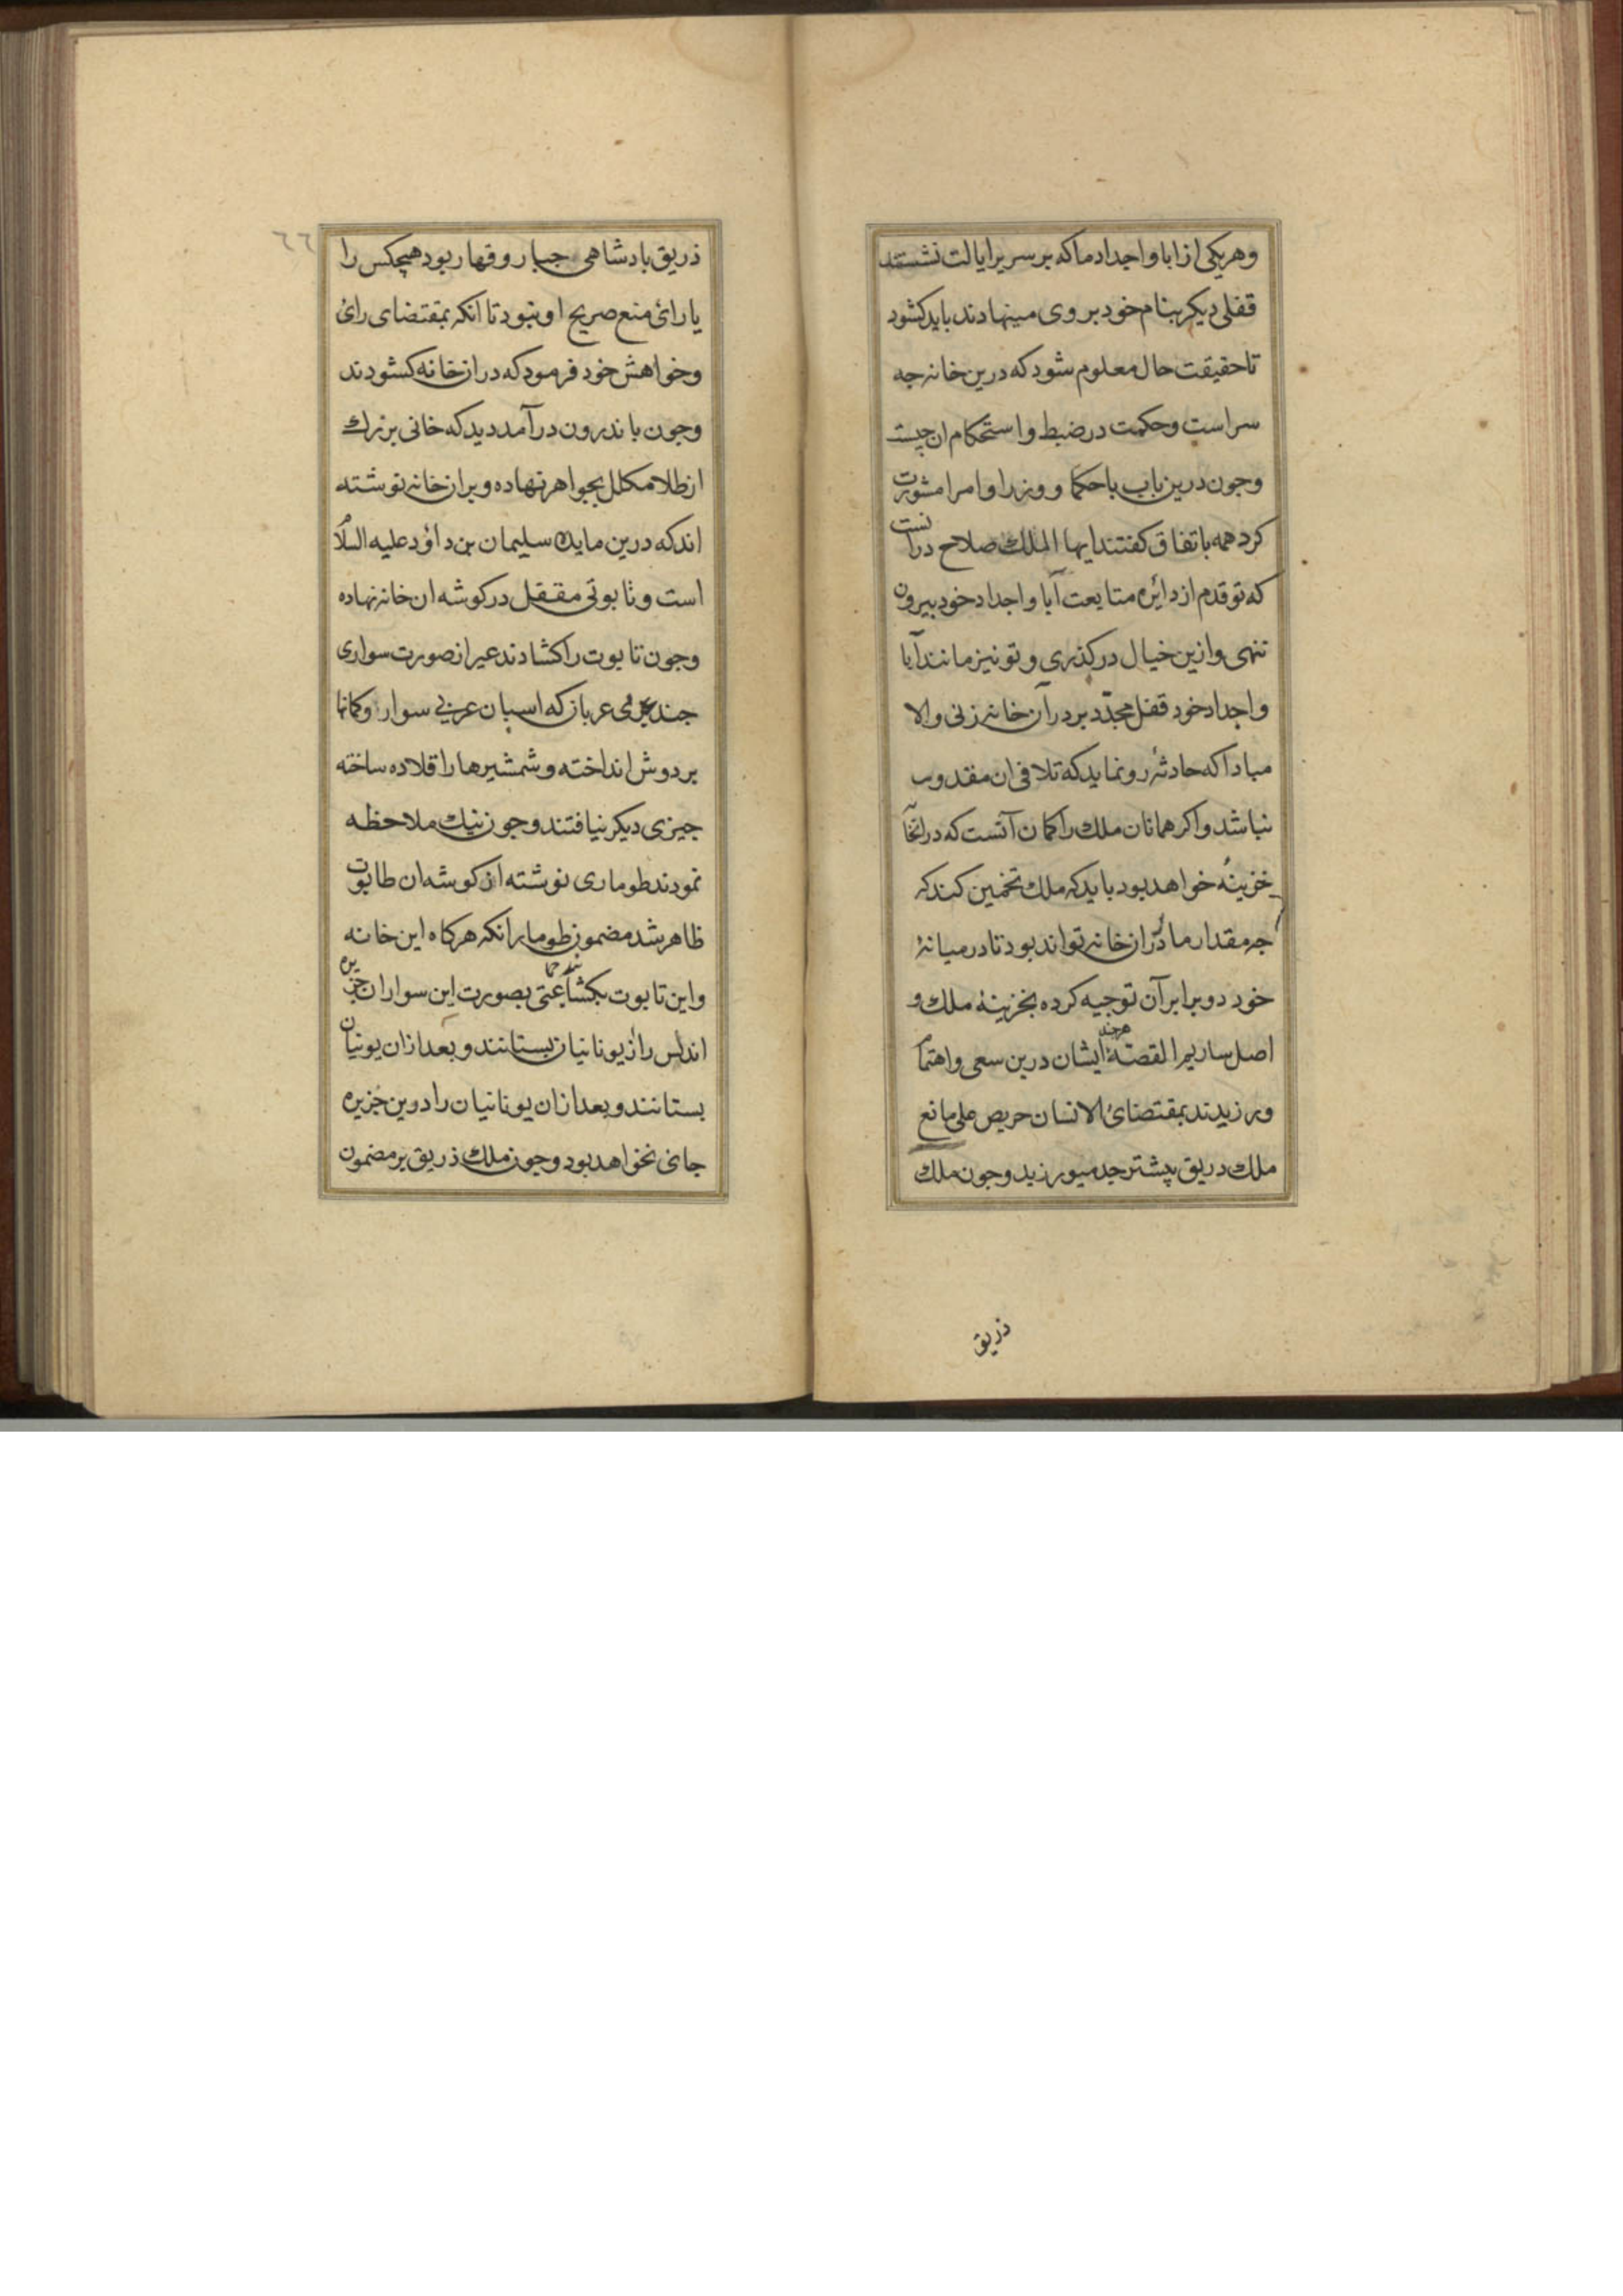 وهریکی از ابا و اجداد ما که بر سریر ایالت نشستند
قفلی دیکر بنام خود بر وی مینهادند باید کشود
تا حقیقت حال معلوم شود که درین خانه جه
سر است و حکمت در ضبط و استحکام ان چیست
وجون درین باب باحکما و وزرا و امرا مشورت
کرد همه باتفاق کفتند ایها الملک صلاح درانست
که تو قدم از دائره متابعت آبا و اجداد خود بیرون
ننهی وازین خیال درکذری و تو نیز مانند آبا
و اجداد خود قفل مجدّد بر در آن خانه زنی والا
مبادا که حادثه رو نماید که تلافی ان مقدور
نباشد واکر همانان ملک را کمان آنست که درانجا
خزینهٔ خواهد بود باید که ملک تخمین کند که
جه مقدار ما در ان خانه تواند بود تا در میانهٔ
خود دو برابر آن توجیه کرده بخزینهٔ ملک و
اصل سازیم القصّه هرچند ایشان درین سعی واهتما
ورزیدند بمقتضائ الانسان حریص علی ما نع
ملک دریق پیشتر جد میورزید وجون ملک
ذریق
٦٦
ذریق بادشاهی جبار و قهار بود هیچکس را
یارائ منع صریح او نبود تا انکه بمقتضای رائ
وخواهش خود فرمود که در ان خانه کشودند
وجون باندرون درآمد دید که خانی بزرك
از طلا مکلل بجواهر نهاده و بر ان خانه نوشته
اند که درین مایده سلیمان بن داؤد علیه السلام
است و تابوتی مقفل در کوشه ان خانه نهاده
وجون تابوت را کشادند غیر از صورت سواری
جند عربان که اسبان عربی سوار و کمانها
بر دوش انداخته و شمشیرها را قلاده ساخته
جیزی دیکر نیافتند و جون نیك ملاحظه
نمودند طوماری نوشته از کوشه ان طابوت
ظاهر شد مضمون طومار انکه هرکاه این خانه
واین تابوت بکشایند جماعتی بصورت این سواران جزیره
اندلس را از یونانیان بستانند و بعد ازان یونیان
بستانند و بعد ازان یونانیان را دوین جزیره
جائ نخواهد بود و جون ملك ذریق بر مضمون